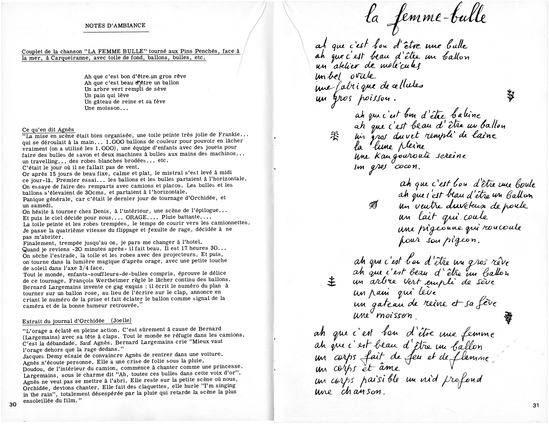 NOTES D'AMBIANCE
Couplet de la chanson "LA FEMME BULLE" tourné aux Pins Penchés, face à
la mer, à Carqueiranne, avec toile de fond, ballons, bulles, etc.
Ah que c'est bon d'être un gros rêve
Ah que c'est beau d'être un ballon
Un arbre vert rempli de sève
Un pain qui lève
Un gâteau de reine et sa fève
Une moisson...
Ce qu'en dit Agnès
"La mise en scène était bien organisée, une toile peinte très jolie de Frankie...
qui se déroulait à la main... 1.000 ballons de couleur pour pouvoir en lâcher
vraiment (on a utilisé les 1.000), une équipe d'enfants avec des joujoux pour
faire des bulles de savon et deux machines à bulles aux mains des machinos...
un travelling... des robes blanches brodées... etc.
C'était le jour où il ne fallait pas de vent.
Or après 15 jours de beau fixe, calme et plat, le mistral s'est levé à midi
ce jour-là. Premier essai... les ballons et les bulles partaient à l'horizontale.
On essaye de faire des remparts avec camions et places. Les bulles et les
ballons s'élevaient de 30cms, et partaient à l'horizontale.
Panique générale, car c'était le dernier jour de tournage d'Orchidée, et
un samedi.
On hésite à tourner chez Denis, à l'intérieur, une scène de l'épilogue...
Et puis le ciel décide pour nous.... ORAGE.... Pluie battante....
La toile peinte et les robes trempées, le temps de courir vers les camionnettes.
Je passe la quatrième vitesse du flippage et j'exulte de rage, décidée à ne
pas m'abriter.
Finalement, trempée jusqu'au os, je pars me changer à l'hôtel.
Quand je reviens -20 minutes après- il fait beau. Il est 17 heures 30...
On sèche l'estrade, la toile et les robes avec des projecteurs, Et puis,
on tourne dans la lumière magique d'après orage, avec une petite touche
de soleil dans l'axe 3/4 face.
Tout le monde, enfants-souffleurs-de-bulles compris, éprouve le délice
de ce tournage. François Wertheimer règle le lâcher continu des ballons.
Bernard Largemains invente ce gag exquis : il écrit le numéro du plan à
tourner sur un ballon rose, au lieu de l'écrire sur le clap, annonce en
criant le numéro de la prise et fait éclater le ballon comme signal de la
caméra et de la bonne humeur retrouvée."
Extrait du journal d'Orchidée (Joelle)
"L'orage a éclaté en pleine action. C'est sûrement à cause de Bernard
(Largemains) avec sa tête à claps. Tout le monde se réfugie dans les camions.
C'est la débandade. Sauf Agnès, Bernard Largemains crie "Mieux vaut
l'orage dehors que la rage dedans."
Jacques Demy essaie de convaincre Agnès de rentrer dans une voiture.
Agnès s'écoute personne. Elle a une crise de folie sous la pluie.
Doudou, de l'intérieur du camion, commence à chanter comme une princesse.
Largemains, sous le charme dit "Ah, toutes ces bulles dans cette voix d'or".
Agnès ne veut pas se mettre à l'abri. Elle reste sur la petite scène où nous,
Orchidée, devions chanter, Elle fait des claquettes, elle hurle "I'm singing
in the rain", totalement désespérée par la pluie qui retarde la scène la plus
ensoleillée du film."
30
la femme-bulle
ah que c'est bon d'être une bulle
ah que c'est beau d'être un ballon
un atelier de molécules
un bel ovule
une fabrique de cellules
un gros poisson.
ah que c'est bon d'être baleine
ah que c'est beau d'être un ballon
un gros duvet rempli de laine
la lune pleine
une kangouroute sereine
un gros cocon.
ah que c'est bon d'être une boule
ah que c'est beau d'être un ballon
un ventre duveteux de poule
un lait qui coule
une pigeonne qui roucoule
pour son pigeon.
ah que c'est bon d'être un gros rêve
ah que c'est beau d'être un ballon
un arbre vert empli de sève
un pain qui lève
un gateau de reine et sa fève
une moisson.
ah que c'est bon d'être une femme
ah que c'est beau d'être un ballon
un corps fait de feu et de flamme
un corps et âme
un corps paisible un nid profond
une chanson.
31